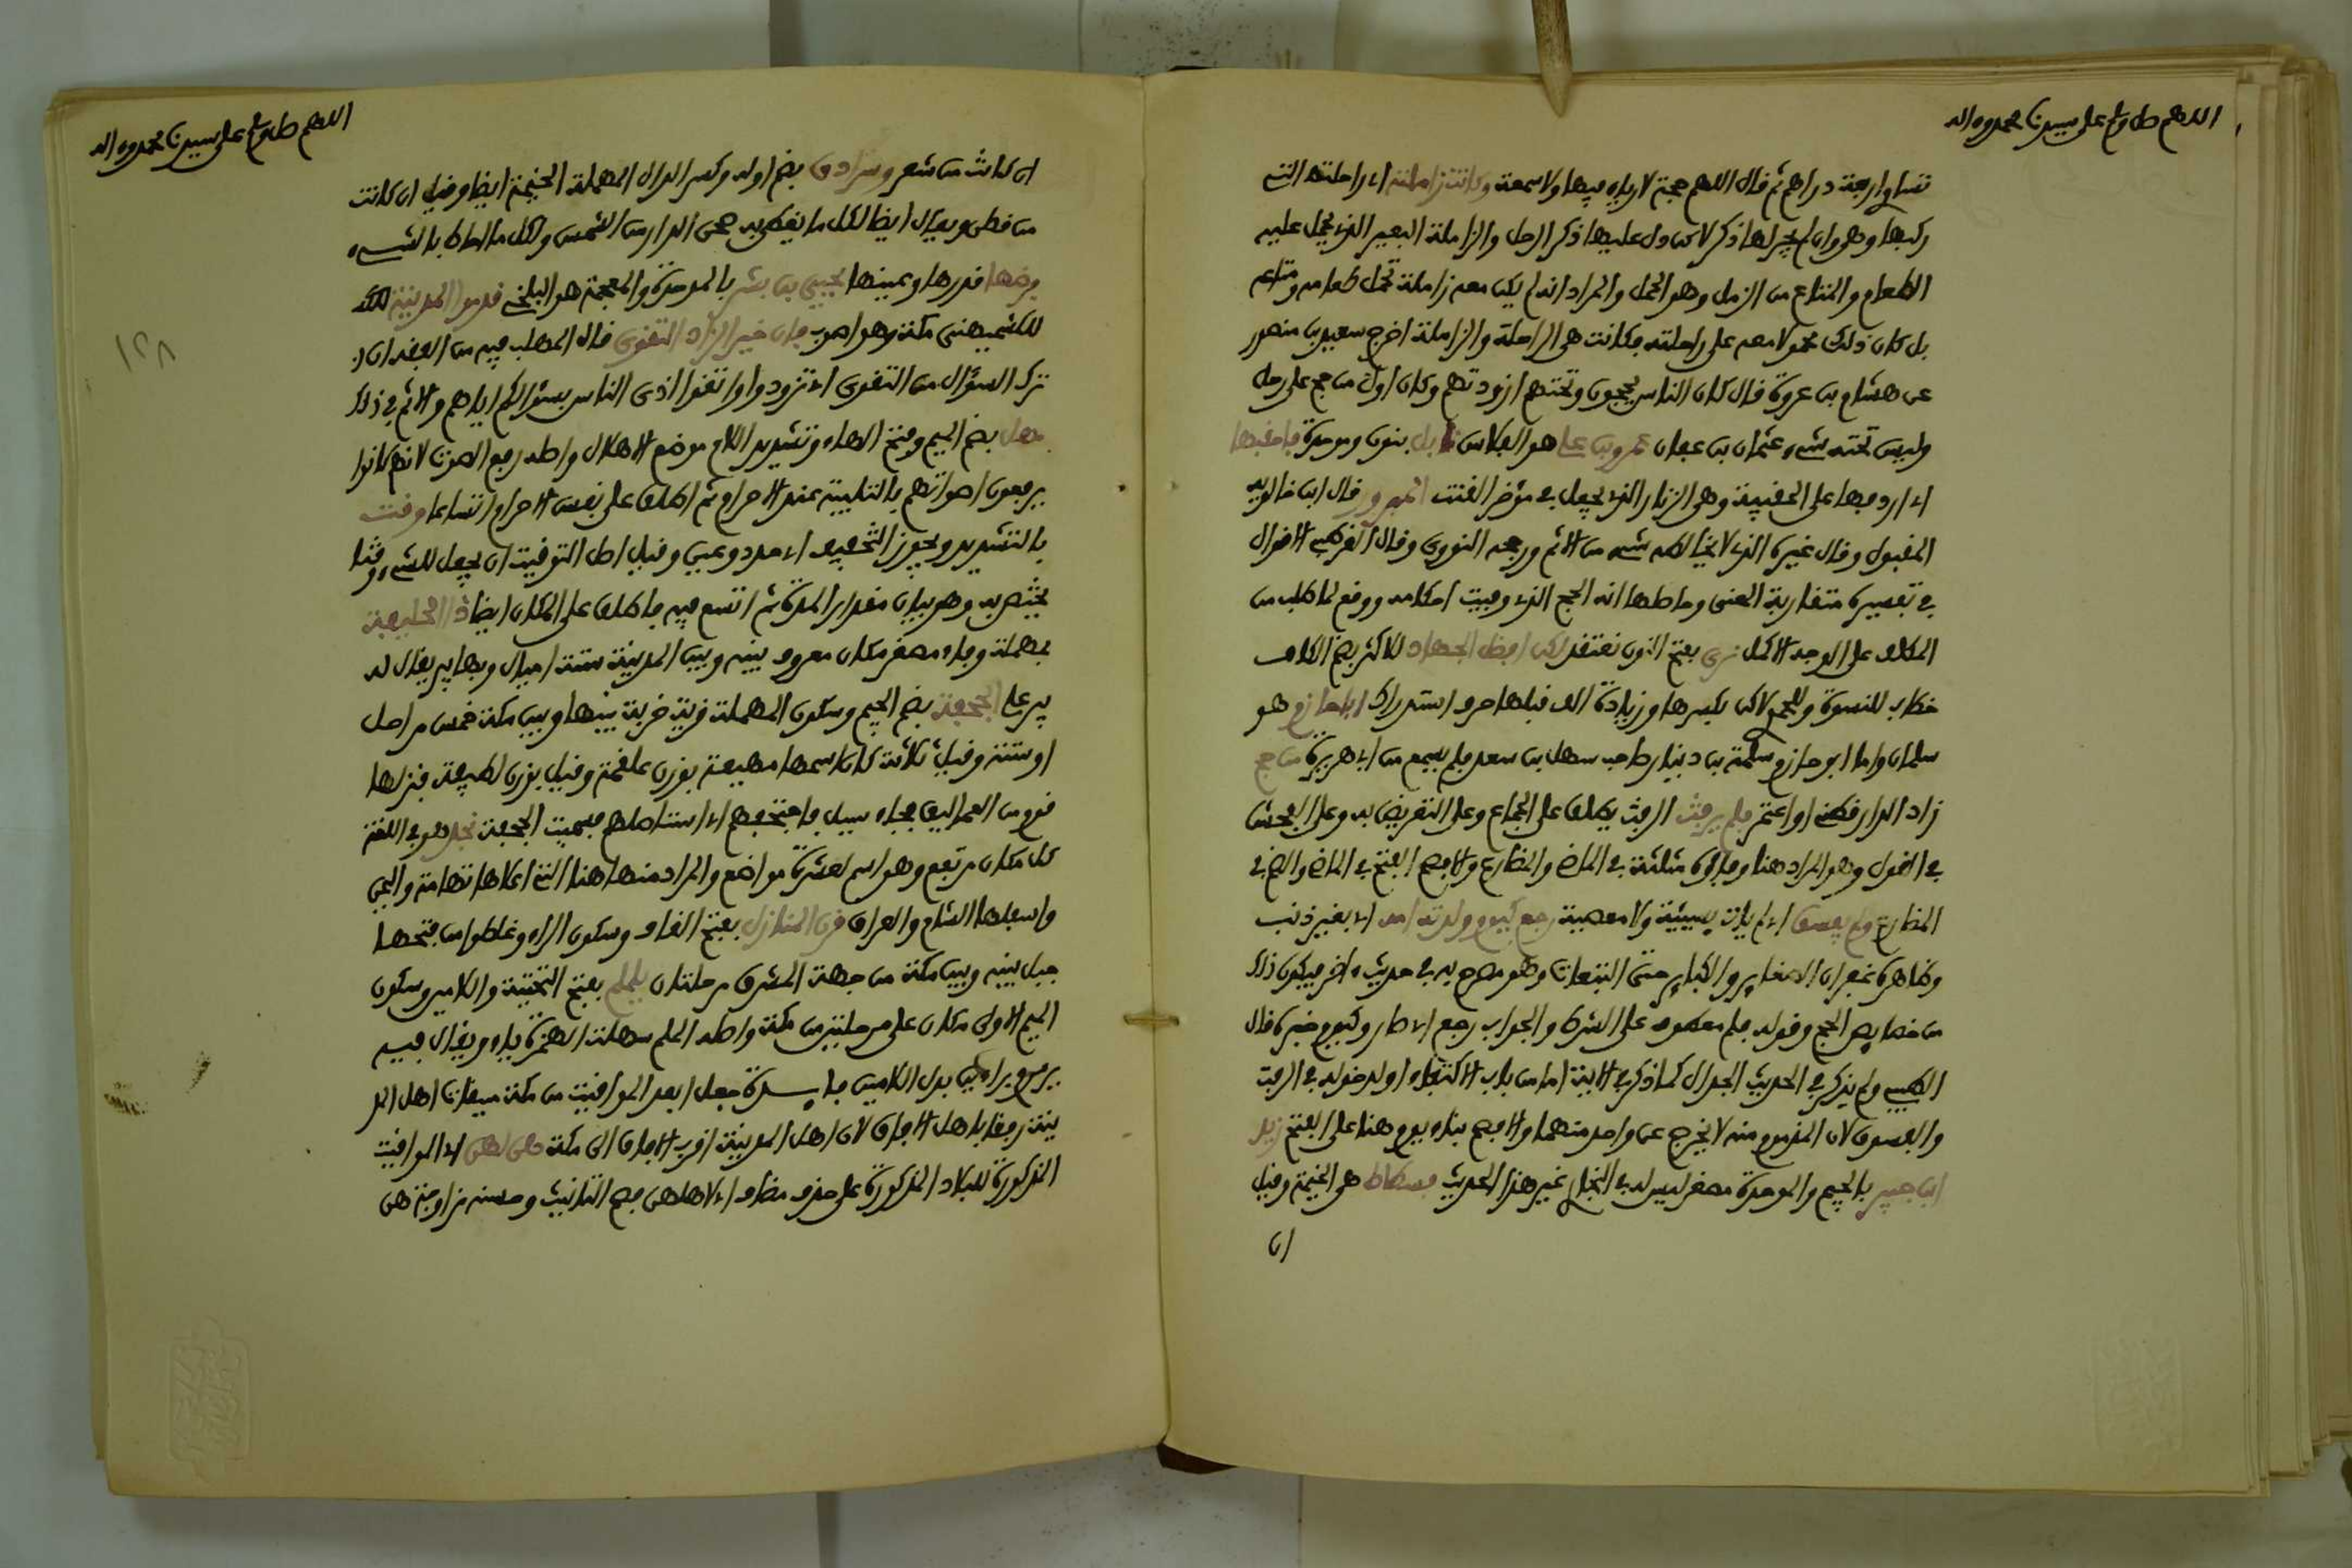 اللهم صل وسلم على سيدنا محمد وءاله
تساوي اربعة دراهم ثم قال اللهم حجة لا رياء فيها ولا سمعة وكانت زاملته اي راحلته التي
ركبها وهو وان لم يجر لها ذكر لاكن دل عليها ذكر الرحل والزاملة البعير الذي يحمل عليه
الطعام والمتاع من الزمل وهو الحمل والمراد انه لم يكن معه زاملة تحمل طعامه ومتاعه
بل كان ذلك محمولا معه على راحلته فكانت هي الراحلة والزاملة اخرج سعيد بن منصور
عن هشام بن عروة قال كان الناس يحجون وتحتهم ازودتهم وكان اول من حج على رحل
وليس تحته شيء عثمان بن عفان عمرو بن علي هو الفلاس نابل بنون وموحدة فاحقبها
اي اردفها على الحقيبة وهي الزنار الذي يجعل في مؤخر القتب المبرور قال ابن خالويه
المقبول وقال غيره الذي لا يخالطه شيء من الاثم ورجحه النووي وقال القرطبي الاقوال
في تفسيره متقاربة المعنى وحاصلها انه الحج الذي وفيت احكامه ووقع لما طلب من
المكلف على الوجه الاكمل نرى بفتح النون نعتقد لكن افضل الجهاد للاكثر بضم الكاف
خطاب للنسوة وللحموي لاكن بكسرها وزيادة الف قبلها حرف استدراك ابا حازم هو
سلمان واما ابو حازم سلمة بن دينار صاحب سهل بن سعد فلم يسمع من ابي هريرة من حج
زاد الدارقطني او اعتمر فلم يرفث الرفث يطلق على الجماع وعلى التعريض به وعلى الفحش
في القول وهو المراد هنا وفاؤه مثلثة في الماضي والمضارع والافصح الفتح في الماضي والضم في
المضارع ولم يفسق اي لم يات بسيئة ولا معصية رجع كيوم ولدته امه اي بغير ذنب
وظاهره غفران الصغاير والكباير حتى التبعات وهو مصرح به في حديث ءاخر فيكون ذلك
من خصايص الحج وقوله فلم معطوف على الشرط والجواب رجع اي صار وكيوم خبره قال
الطيبي ولم يذكر في الحديث الجدال كما ذكر في الاية اما من باب الاكتفاء او لدخوله في الرفث
والفسوق لان المذموم منه لا يخرج عن واحد منهما والافصح بناء يوم هنا على الفتح زيد
ابن جبير بالجيم والموحدة مصغر ليس له في البخاري غير هذا الحديث فسطاط هي الخيمة وقيل
ان
اللهم صل وسلم على سيدنا محمد وءاله
ان كانت من شعر وسرادق بضم اوله وكسر الدال المهملة الخيمة ايضا وقيل ان كانت
من قطن ويقال ايضا لكل ما يغطى به صحن الدار من الشمس ولكل ما احاط بالشيء
فرضها قدرها وعينها يحيى بن بشر بالموحدة والمعجمة هو البلخي قدموا المدينة
للكشميهني مكة وهو اصوب فان خير الزاد التقوى قال المهلب فيه من الفقه ان
ترك السؤال من التقوى اي تزودوا واتقوا اذى الناس بسؤالكم اياهم والاثم في ذلك
مهل بضم الميم وفتح الهاء وتشديد اللام موضع الاهلال واصله رفع الصوت لانهم كانوا
يرفعون اصواتهم بالتلبية عند الاحرام ثم اطلق على نفس الاحرام اتساعا وقت
بالتشديد ويجوز التخفيف اي حدد وعين وقيل اصل التوقيت ان يجعل للشيء وقتا
يختص به وهو بيان مقدار المدة ثم اتسع فيه فاطلق على المكان ايضا ذا الحليفة
بمهملة وفاء مصغر مكان معروف بينه وبين المدينة ستة اميال وبها بير يقال له
بير علي الجحفة بضم الجيم وسكون المهملة قرية خربة بينها وبين مكة خمس مراحل
او ستة وقيل ثلاثة كان اسمها مهيعة بوزن علقمة وقيل بوزن لطيفة فنزلها
قوم من العماليق فجاء سيل فاجتحفهم اي استاصلهم فسميت الجحفة نجد هو في اللغة
كل مكان مرتفع وهو اسم لعشرة مواضع والمراد منها هنا التي اعلاها تهامة واليمن
واسفلها الشام والعراق قرن المنازل بفتح القاف وسكون الراء وغلطوا من فتحها
جبل بينه وبين مكة من جهة المشرق مرحلتان يلملم بفتح التحتية واللامين وسكون
الميم الاولى مكان على مرحلتين من مكة واصله الملم سهلت الهمزة ياء ويقال فيه
يرمرم براءين بدل اللامين فايدة جعل ابعد المواقيت من مكة ميقات اهل المد
ينة رفقا باهل الافاق لان اهل المدينة اقرب الافاق الى مكة هن لهن اي المواقيت
المذكورة للبلاد المذكورة على حذف مضاف اي لاهلهن فصح التانيث وحسنه مزاوجة هن
١٢٨